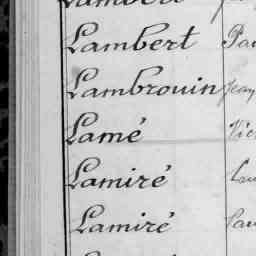 Lambert
Lambrouin Jean
Lamé
Lamiré
Lamiré